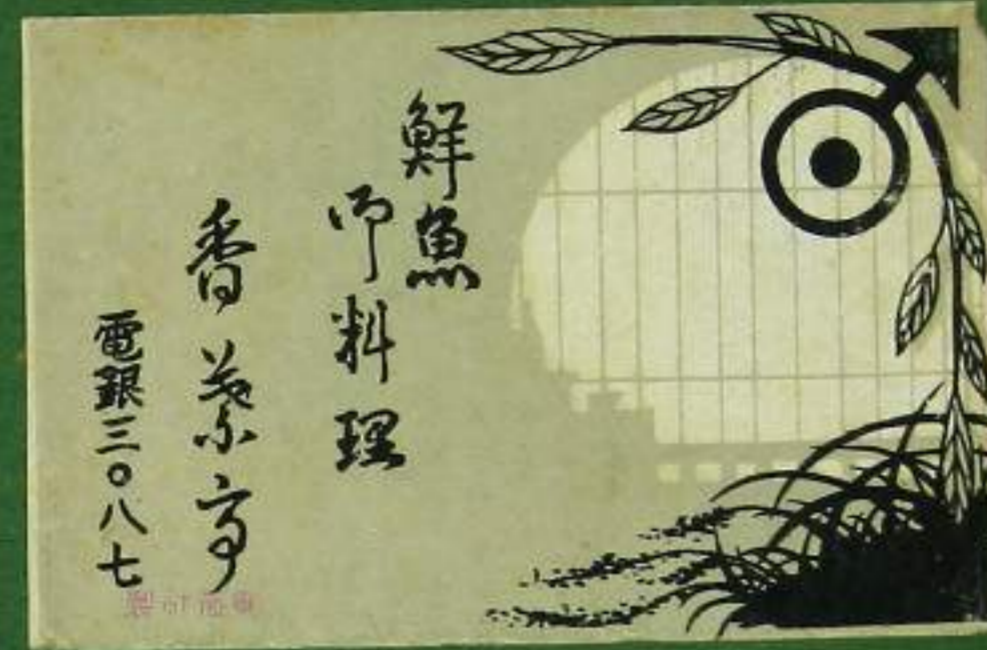 鮮魚
御料理
香葉亭
電銀三〇八七